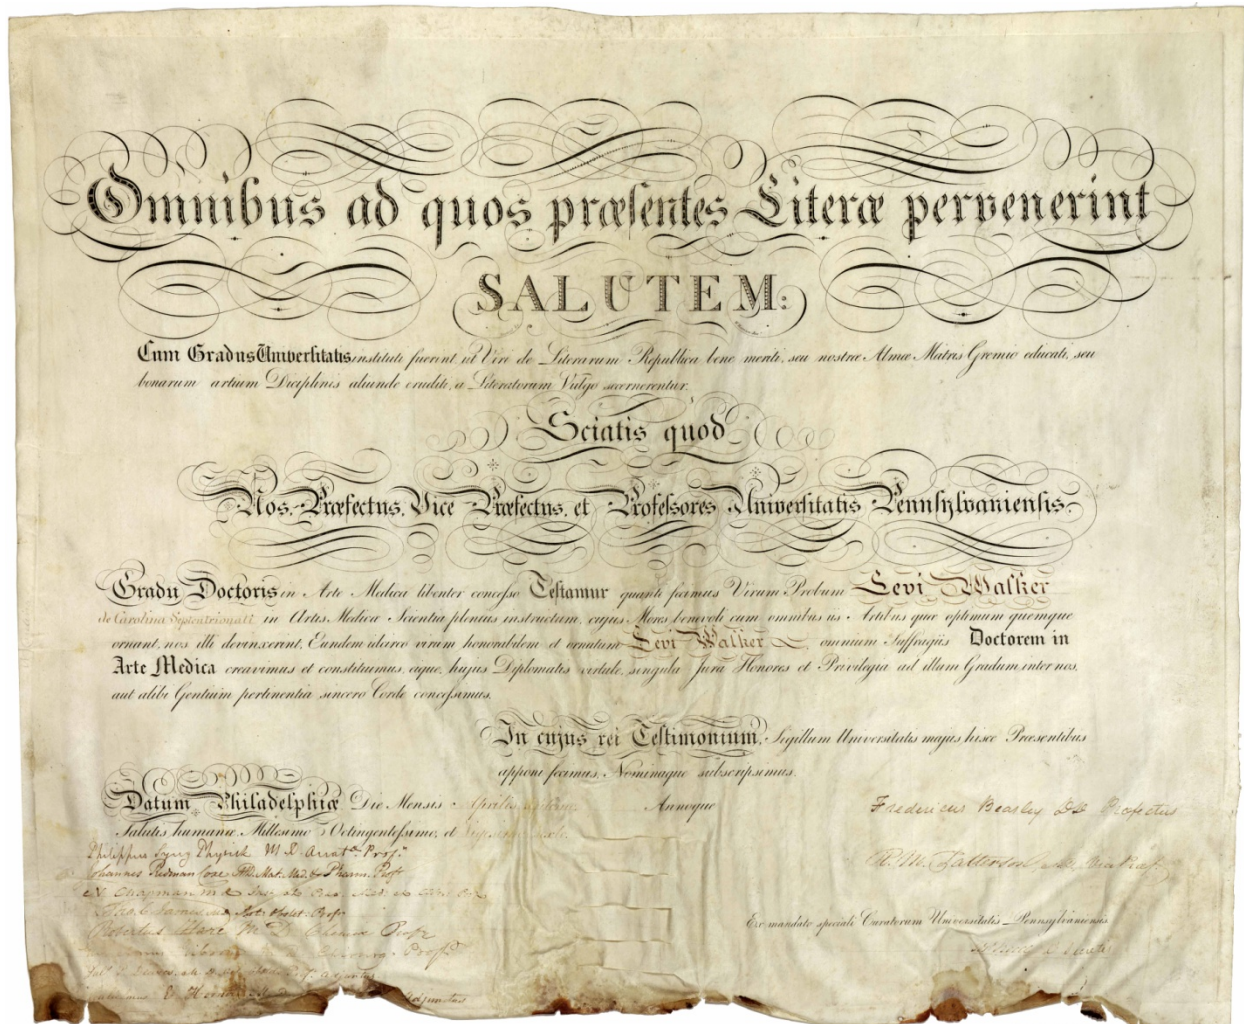 Omnibus ad quos præsentes Literæ pervenerint
SALUTEM:
Cum Gradus Universitatis instituti fuerint, ut Viri de Literarum Republica bene meriti, seu nostræ Almæ Matris Gremio educati, seu
bonarum artium Diciplinis aliunde eruditi, a Literatorum Vulgo secernerentur.
Sciatis quod
Nos, Præfectus, Vice Præfectus, et Professores Universitatis Pennsylvaniensis,
Gradu Doctoris in Arte Medica libenter concesso Testamur quanti fecimus Virum Probum Levi Walker
de Carolina Septentrionali in Artis Medicæ Scientia plenius instructum, cujus Mores benevoli cum omnibus iis Artibus quæ optimum quemque
ornant, nos illi devinxerint, Eundem idcirco virum honorabilem et ornatum Levi Walker omnium Suffragiis Doctorem in
Arte Medica creavimus et constituimus, eique, hujus Diplomatis virtute, singula Jura Honores et Privilegia ad illum Gradum inter nos,
aut alibi Gentium pertinentia sincero Corde concessimus.
In cujus rei Testimonium, Sigillum Universitatis majus hisce Præsentibus
apponi fecimus, Nominaque subscripsimus.
Datum Philadelphiæ Die Mensis Aprilis Annoque
Salutis humanæ Millesimo Octingentessimo, et
Fredericus Beasley DD Præfectus
Philippus Syng Physick M D Anat. Prof.
Johannes Redman Coxe Mat. Med. & Pharm. Prof.
R. M. Patterson
N Chapman M D
Robertus Hare M D Chemiæ Prof.
Ex mandato speciali Curatorum Universitatis Pennsylvaniensis
Prof.
Adjunctus